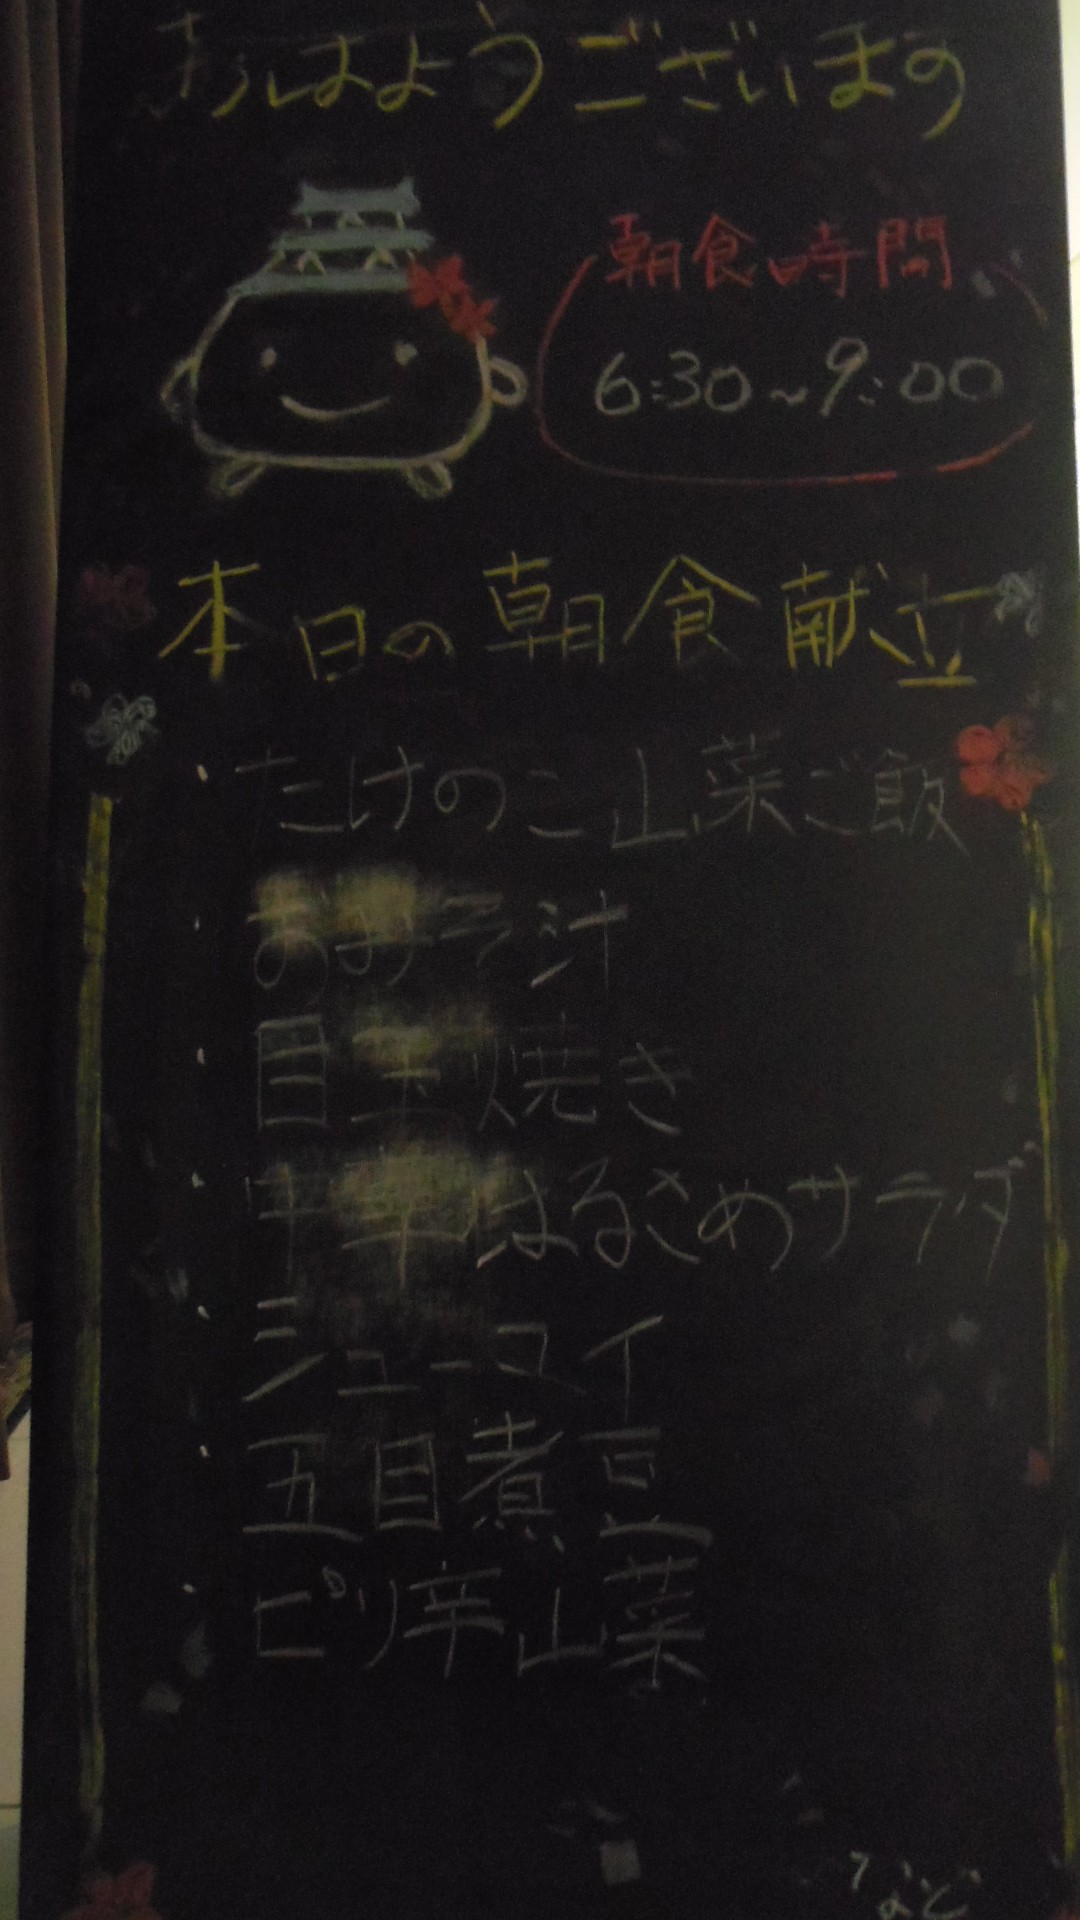 おはようございます
朝食時間
6:30~9:00
本日の朝食献立
・たけのこ山菜ご飯
・おみそ汁
・目玉焼き
・中華はるさめサラダ
・シューマイ
・五目煮豆
・ピリ辛山菜
など